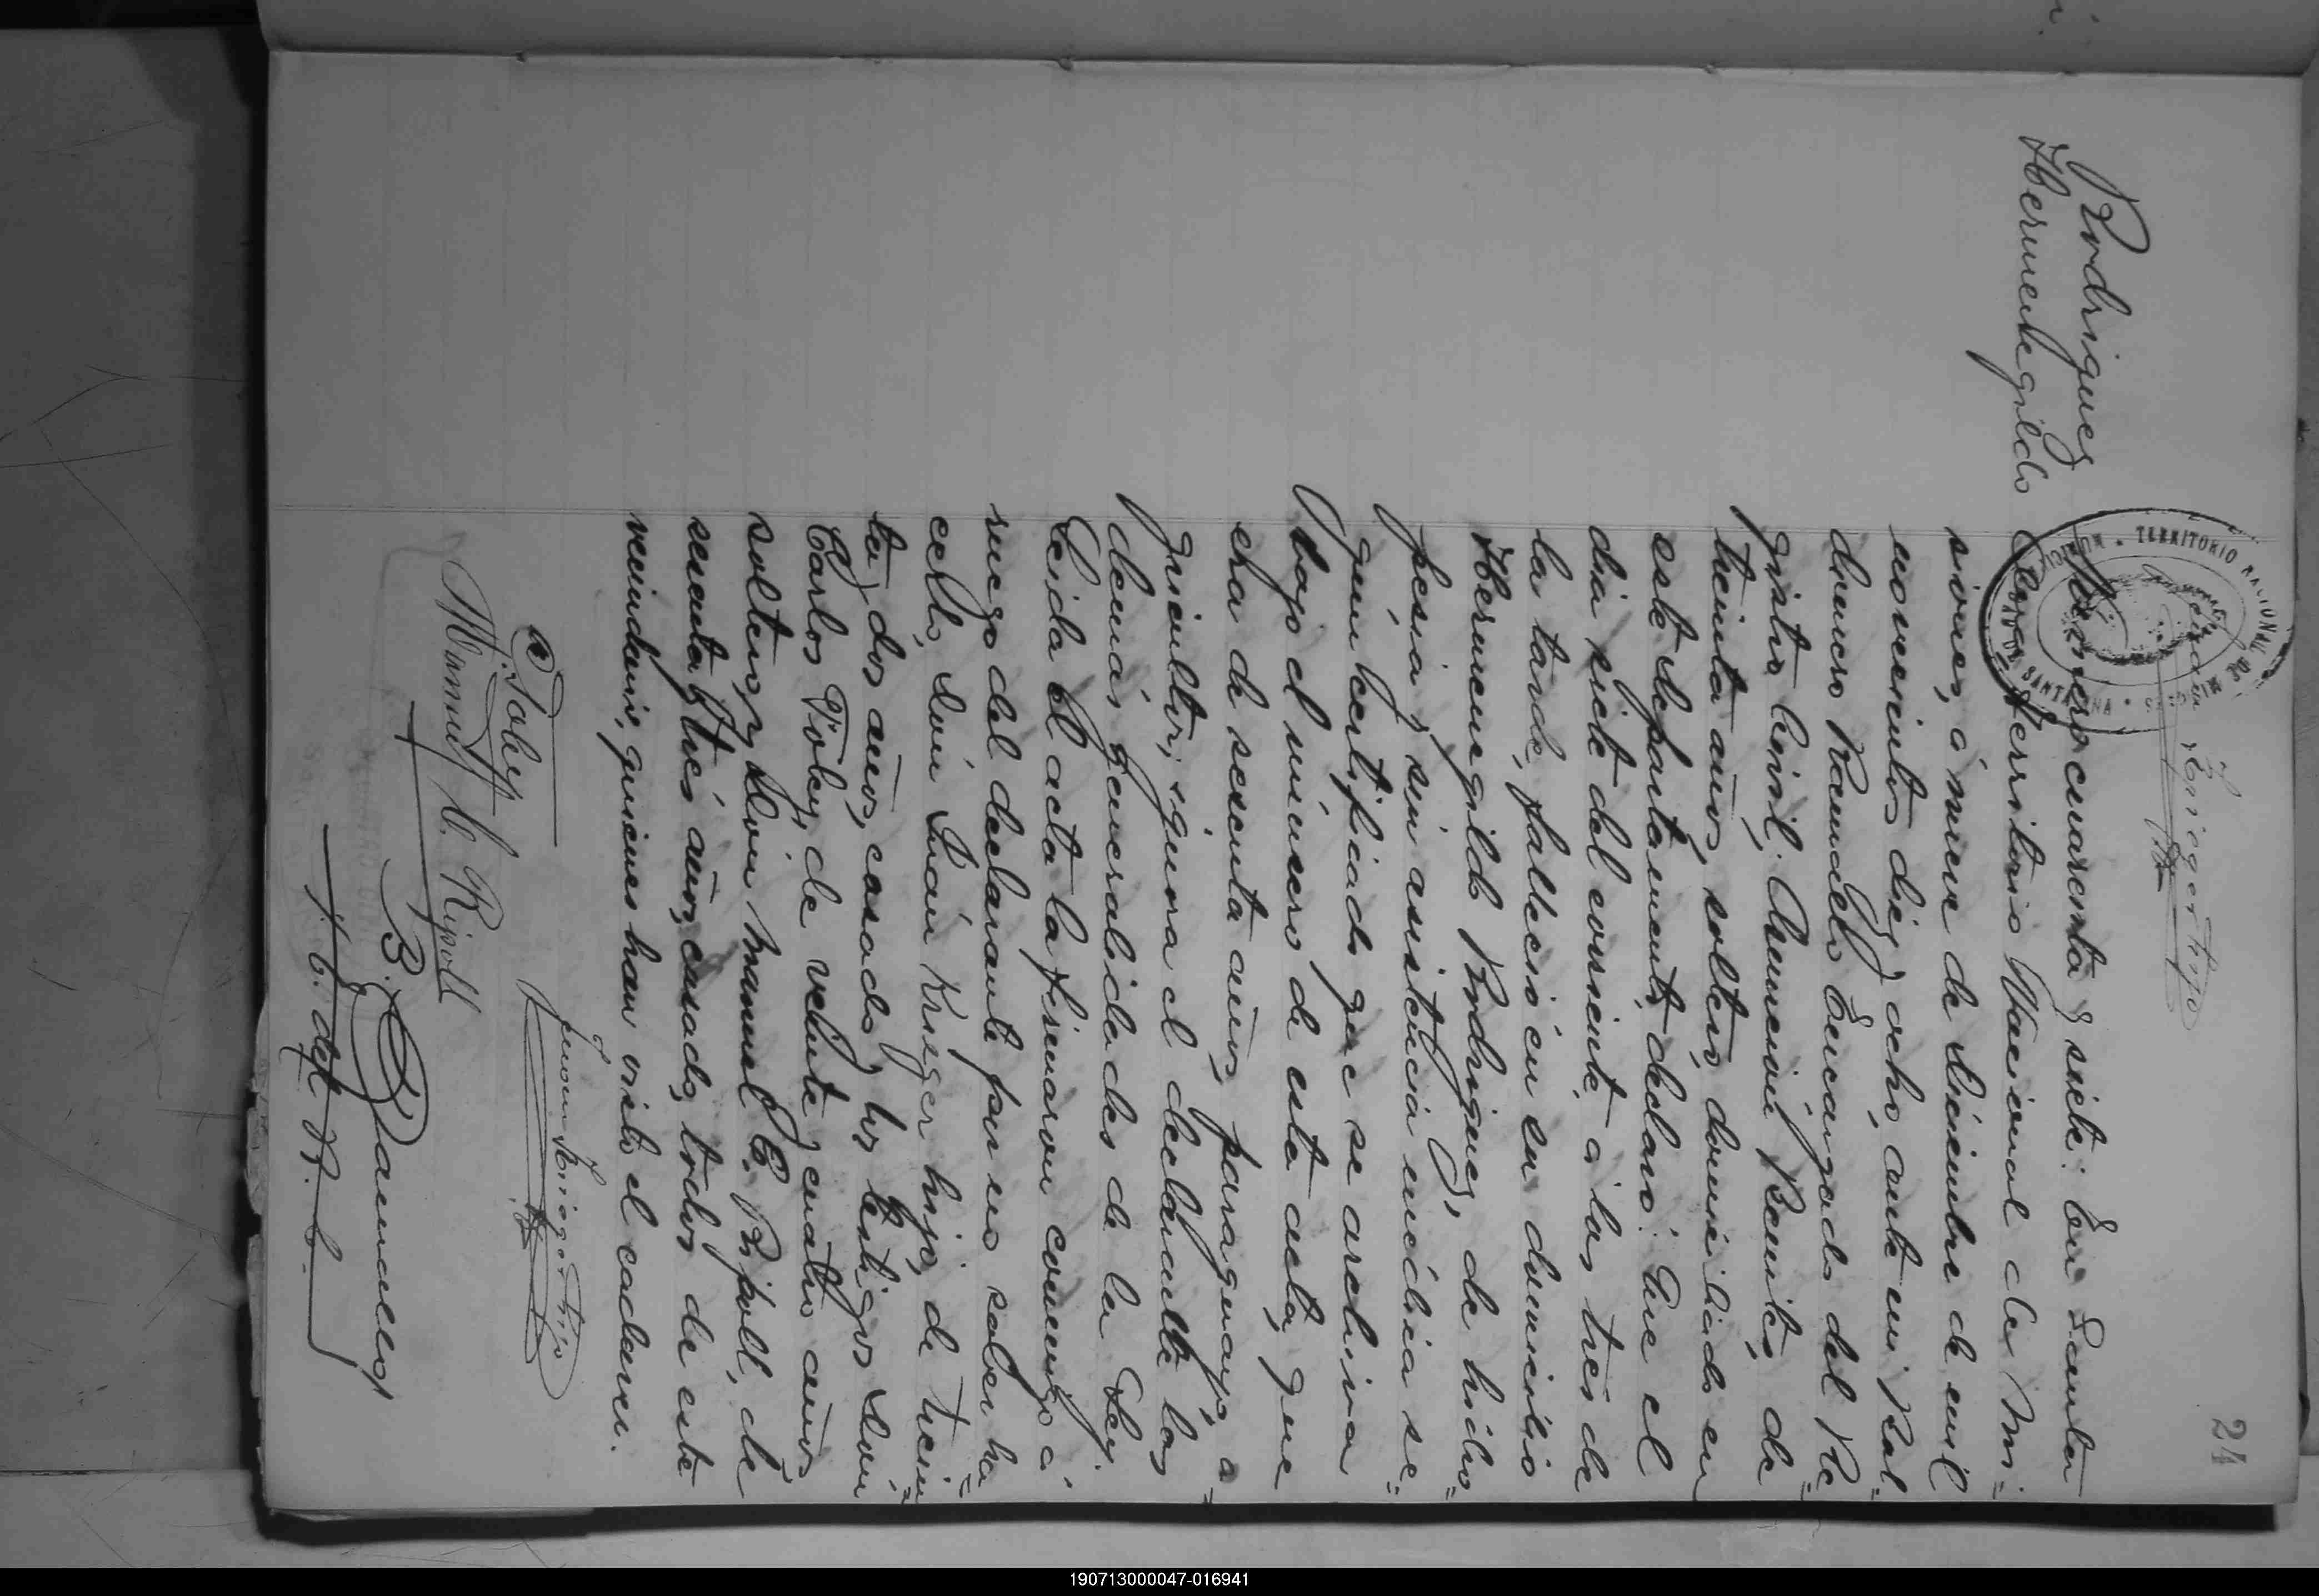 24
Krieger hijo
TERRITORIO NACIONAL DE MISIONES
SANTA ANA
Rodriguez
Hermenegildo
Número cuarenta y siete: En Santa
Ana, Territorio Nacional de Mi=
siones, á nueve de Diciembre de mil
novecientos diez y ocho, ante mi Bal=
domero Ramallo Encargado del Re=
gistro Civil. Asuncion Benites, de
treinta años, soltero, domiciliado en
este departamento, declaró: Que el
dia siete del corriente á las tres de
la tarde, falleció en su domicilio
Hermenegildo Rodriguez, de hidro=
pesia, sin asistencia médica se=
gún certificado que se archiva
bajo el número de esta acta, que
era de sesenta años, paraguayo, a=
gricultor; ignora el declarante las
demás generalidades de la Ley.
Leida el acta la firmaron conmigo á
ruego del declarante por no saber ha
cerlo, Don Juan Krieger hijo, de trein=
ta y dos años, casado y los testigos Don
Carlos Tobey, de veinte y cuatro años
soltero, y Don Manuel C. Ripoll, de
sesenta y tres años, casado, todos de este
vecindario, quienes han visto el cadaver.
Juan Krieger hijo
C Tobey
Manuel C. Ripoll
B. Ramallo
J. E. del R. C.
190713000047-016941